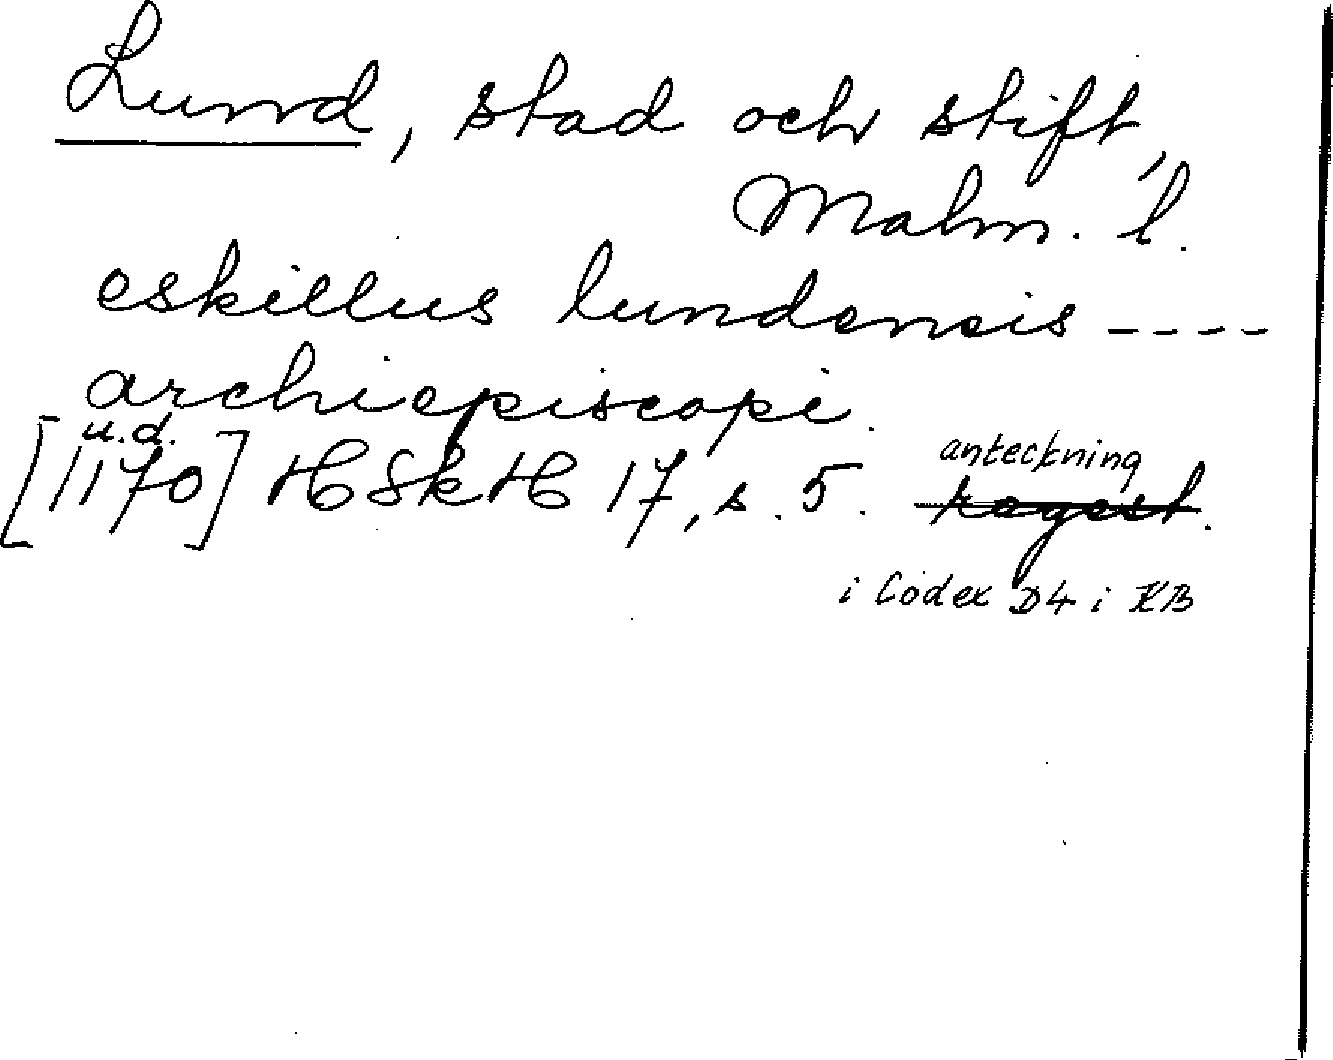 Lund, stad och stift,
Malm. l.
eskillus lundensis ----
archiepiscopi.
u.d.
[1170] HSkH 17, s. 5. anteckning
regest.
i Codex D4 i KB